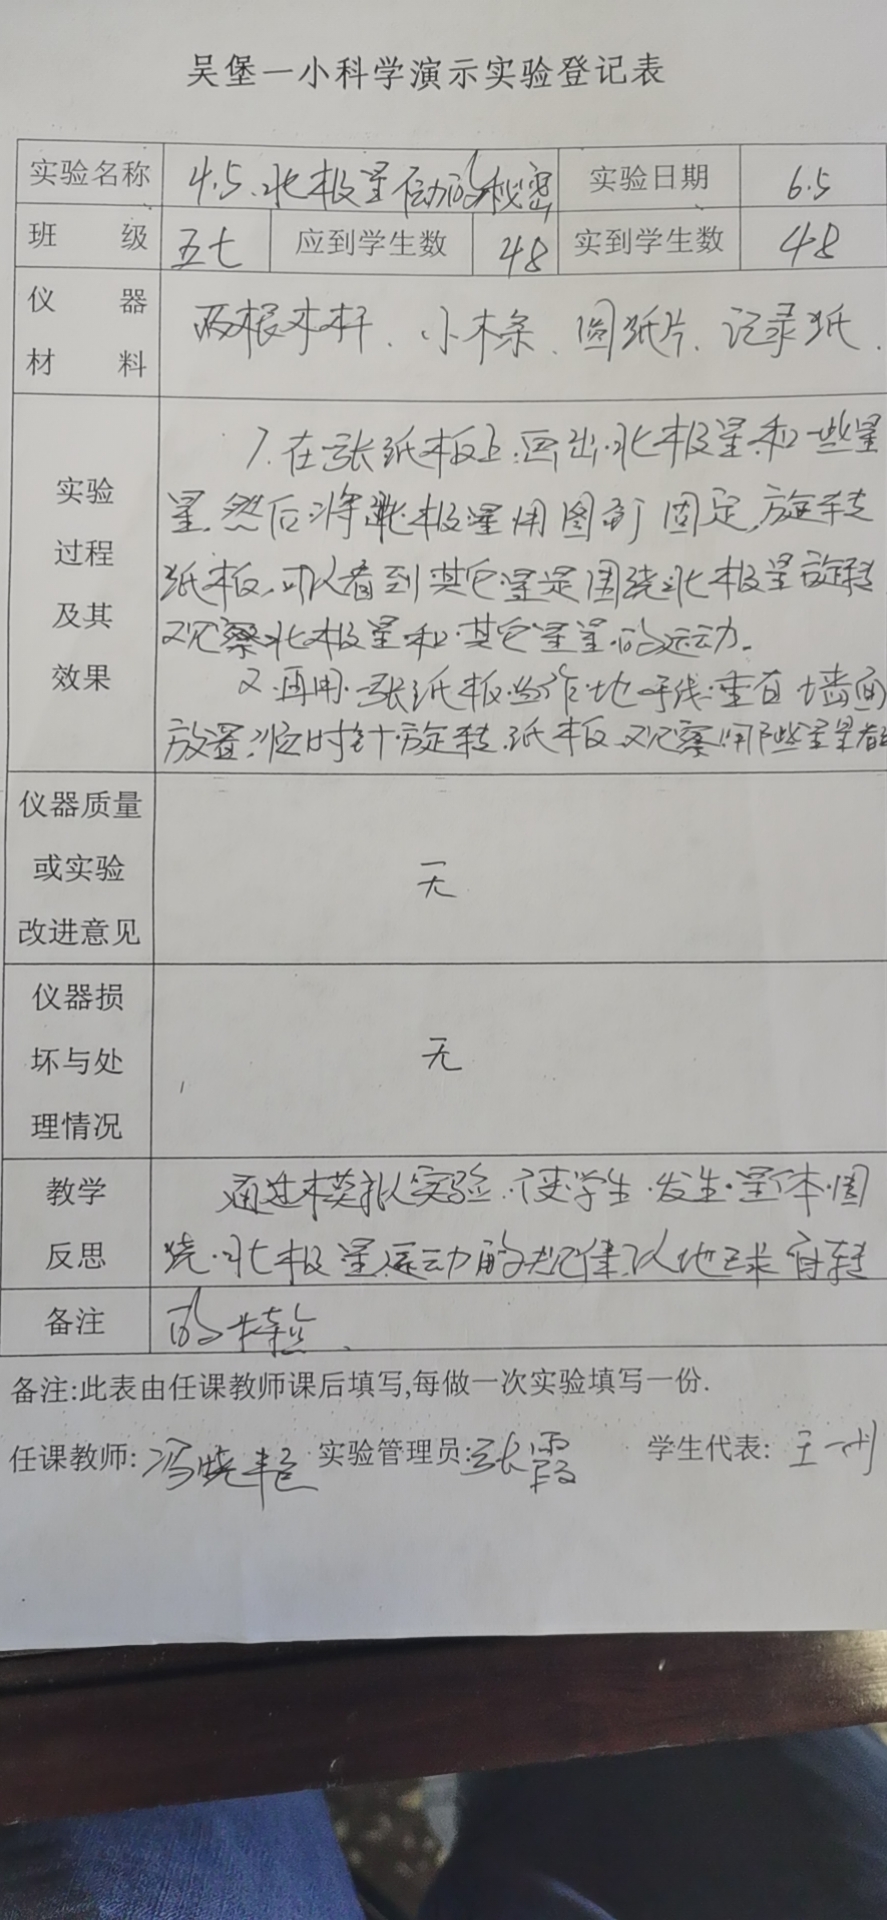 吴堡一小科学演示实验登记表
实验名称 4.5.北极星不动的秘密 实验日期 6.5
班级 五七 应到学生数 48 实到学生数 48
仪器材料 两根木杆、小木条、圆纸片、记录纸.
实验过程及其效果
1.在一张纸板上画出北极星和一些星
星,然后将北极星用图钉固定,旋转
纸板,可以看到其它星是围绕北极星旋转
观察北极星和其它星星的运动。
2.再用一张纸板当作地平线垂直墙面
放置,顺时针旋转纸板观察哪些星星都
仪器质量或实验改进意见 无
仪器损坏与处理情况 无
教学反思 通过模拟实验,使学生发生星体围
绕北极星运动的规律,以地球自转
备注 的特点.
备注:此表由任课教师课后填写,每做一次实验填写一份.
任课教师:冯晓艳 实验管理员:张霞 学生代表: 王一